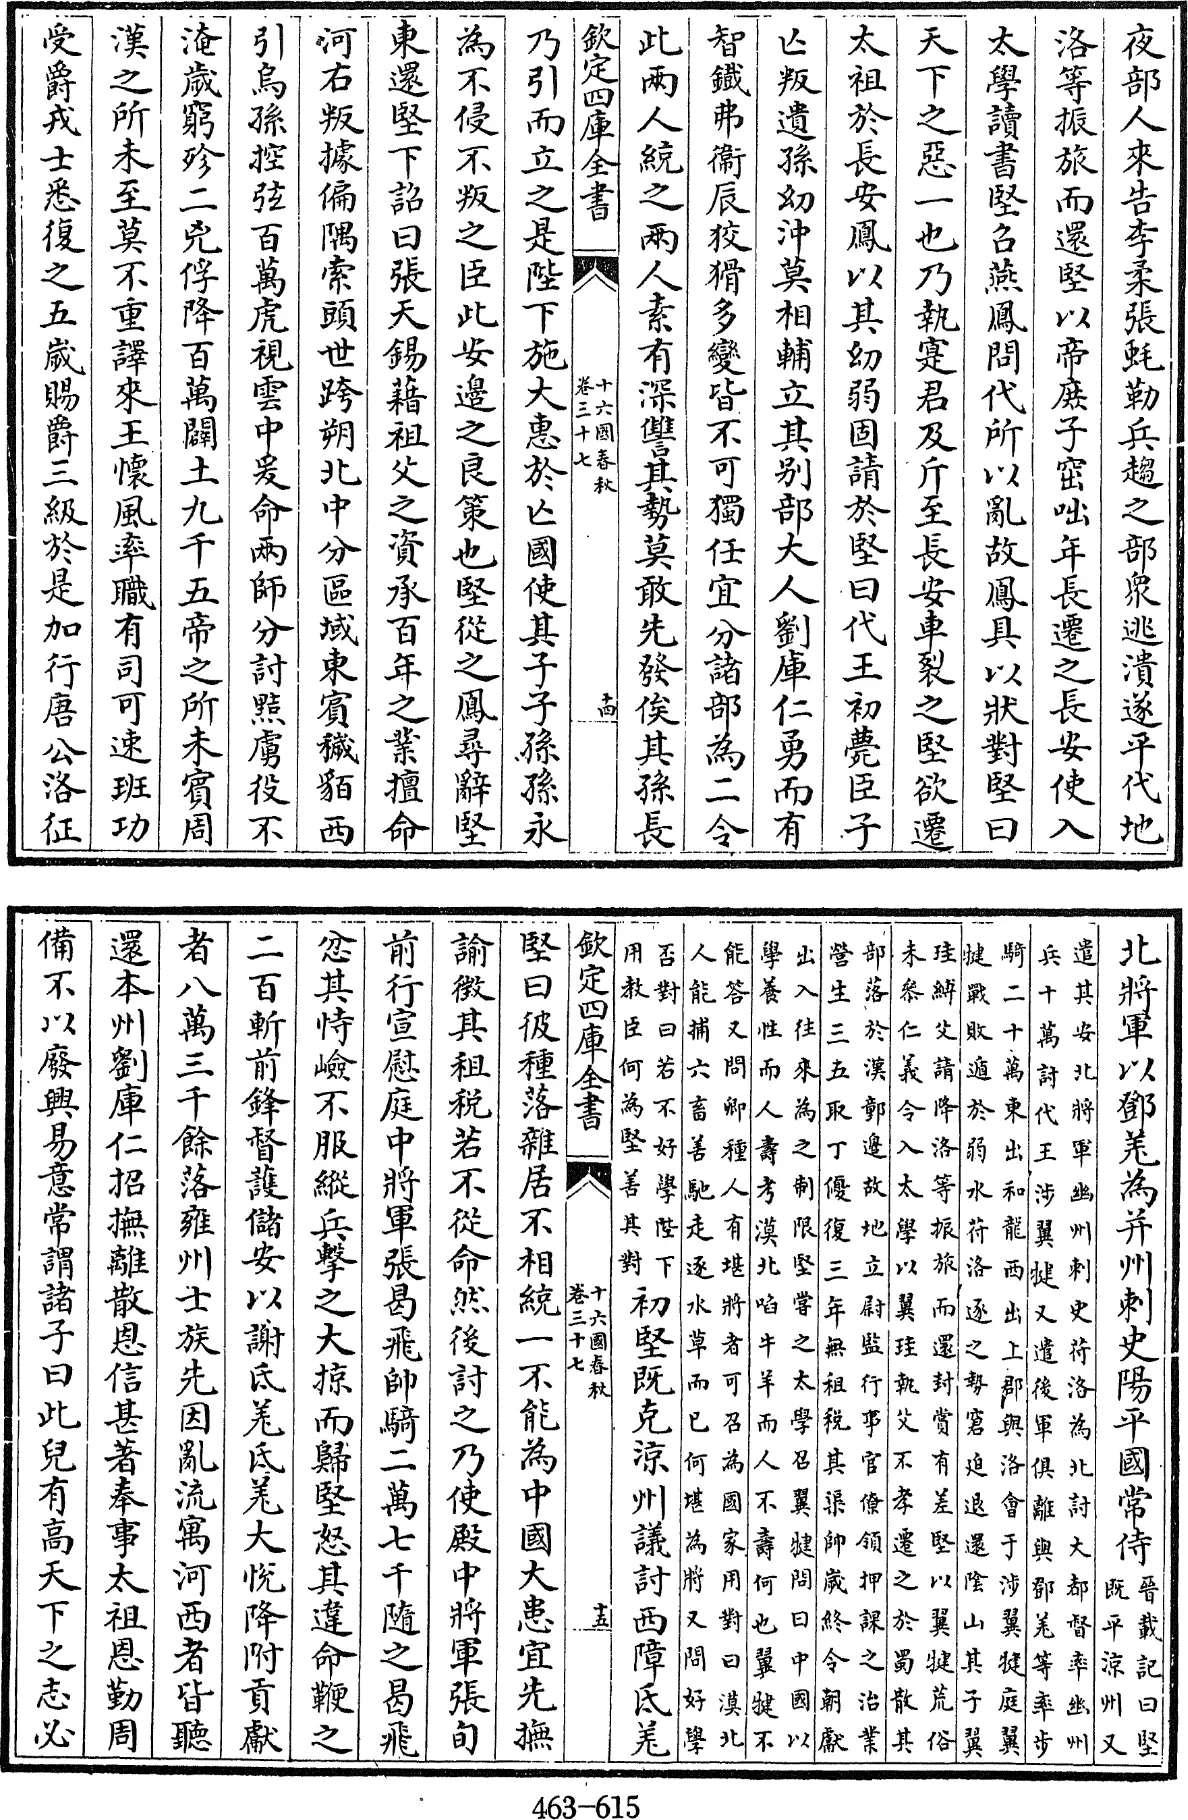 夜部人來告李柔張蚝勒兵趨之部衆逃潰遂平代地
洛等振旅而還堅以帝庶子窋咄年長遷之長安使入
太學讀書堅召燕鳳問代所以亂故鳳具以狀對堅曰
天下之惡一也乃執寔君及斤至長安車裂之堅欲遷
太祖於長安鳳以其幼弱固請於堅曰代王初薨臣子
亡叛遺孫幼沖莫相輔立其别部大人劉庫仁勇而有
智鐵弗衞辰狡猾多變皆不可獨任宜分諸部為二令
此兩人統之兩人素有深讐其勢莫敢先發俟其孫長
欽定四庫全書
十六國春秋
卷三十七
十四
乃引而立之是陛下施大惠於亡國使其子子孫孫永
為不侵不叛之臣此安邊之良策也堅從之鳳尋辭堅
東還堅下詔曰張天錫藉祖父之資承百年之業擅命
河右叛據偏隅索頭世跨朔北中分區域東賓穢貊西
引烏孫控弦百萬虎視雲中爰命兩師分討黠虜役不
淹歲窮殄二兇俘降百萬闢土九千五帝之所未賓周
漢之所未至莫不重譯來王懷風率職有司可速班功
受爵戎士悉復之五歲賜爵三級於是加行唐公洛征
北將軍以鄧羌為并州刺史陽平國常侍
晉載記曰堅
既平涼州又
遣其安北將軍幽州刺史苻洛為北討大都督率幽州
兵十萬討代王涉翼犍又遣後軍俱難與鄧羌等率步
騎二十萬東出和龍西出上郡與洛會于涉翼犍庭翼
犍戰敗遁於弱水苻洛逐之勢窘迫退還陰山其子翼
珪縛父請降洛等振旅而還封賞有差堅以翼犍荒俗
未參仁義令入太學以翼珪執父不孝遷之於蜀散其
部落於漢鄣邊故地立尉監行事官僚領押課之治業
營生三五取丁優復三年無租稅其渠帥歲終令朝獻
出入往來為之制限堅嘗之太學召翼犍問曰中國以
學養性而人壽考漠北啗牛羊而人不壽何也翼犍不
能答又問卿種人有堪將者可召為國家用對曰漠北
人能捕六畜善馳走逐水草而已何堪為將又問好學
否對曰若不好學陛下
用教臣何為堅善其對
初堅既克涼州議討西障氐羌
欽定四庫全書
十六國春秋
卷三十七
十五
堅曰彼種落雜居不相統一不能為中國大患宜先撫
諭徵其租稅若不從命然後討之乃使殿中將軍張旬
前行宣慰庭中將軍張曷飛帥騎二萬七千隨之曷飛
忿其恃嶮不服縱兵擊之大掠而歸堅怒其違命鞭之
二百斬前鋒督護儲安以謝氐羌氐羌大悅降附貢獻
者八萬三千餘落雍州士族先因亂流寓河西者皆聽
還本州劉庫仁招撫離散恩信甚著奉事太祖恩勤周
備不以廢興易意常謂諸子曰此兒有高天下之志必
463-615